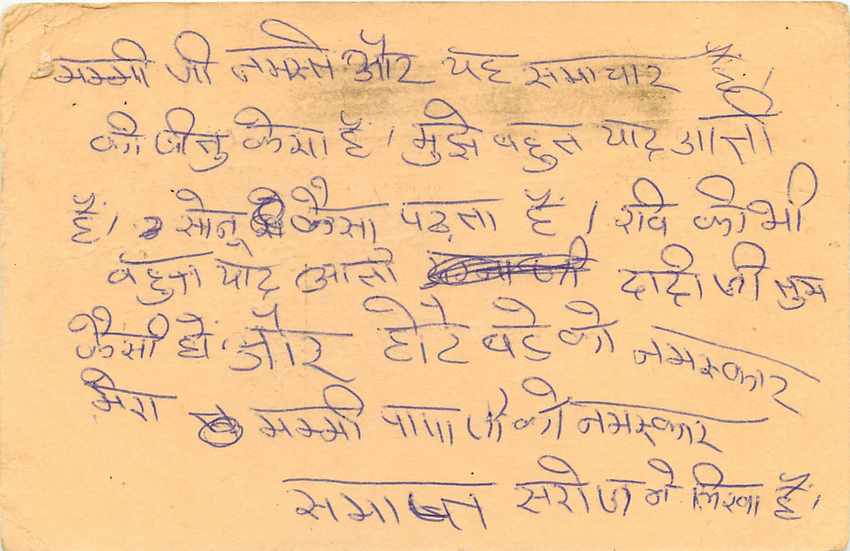 मम्मी जी नमस्ते और यह समाचार है
की जीतु कैसा है। मुझे बहुत याद आती
है। सोनू कैसा पढ़ता है। रवि की भी
बहुत याद आती दादी जी तुम
कैसी हो। और छोटे बडे को नमस्कार
मेरा मम्मी पापा जी को नमस्कार
समाप्त सरोज ने लिखा है।